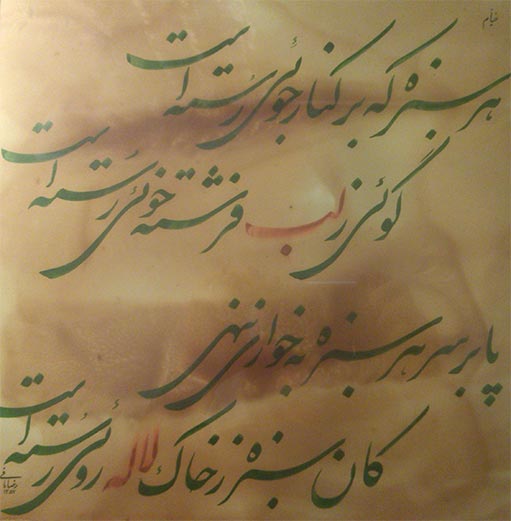 خیام
هر سبزه که بر کنار جوئی رسته است
گوئی ز لب فرشته خوئی رسته است
پا بر سر هر سبزه به خواری ننهی
کان سبزه ز خاک لاله روئی رسته است